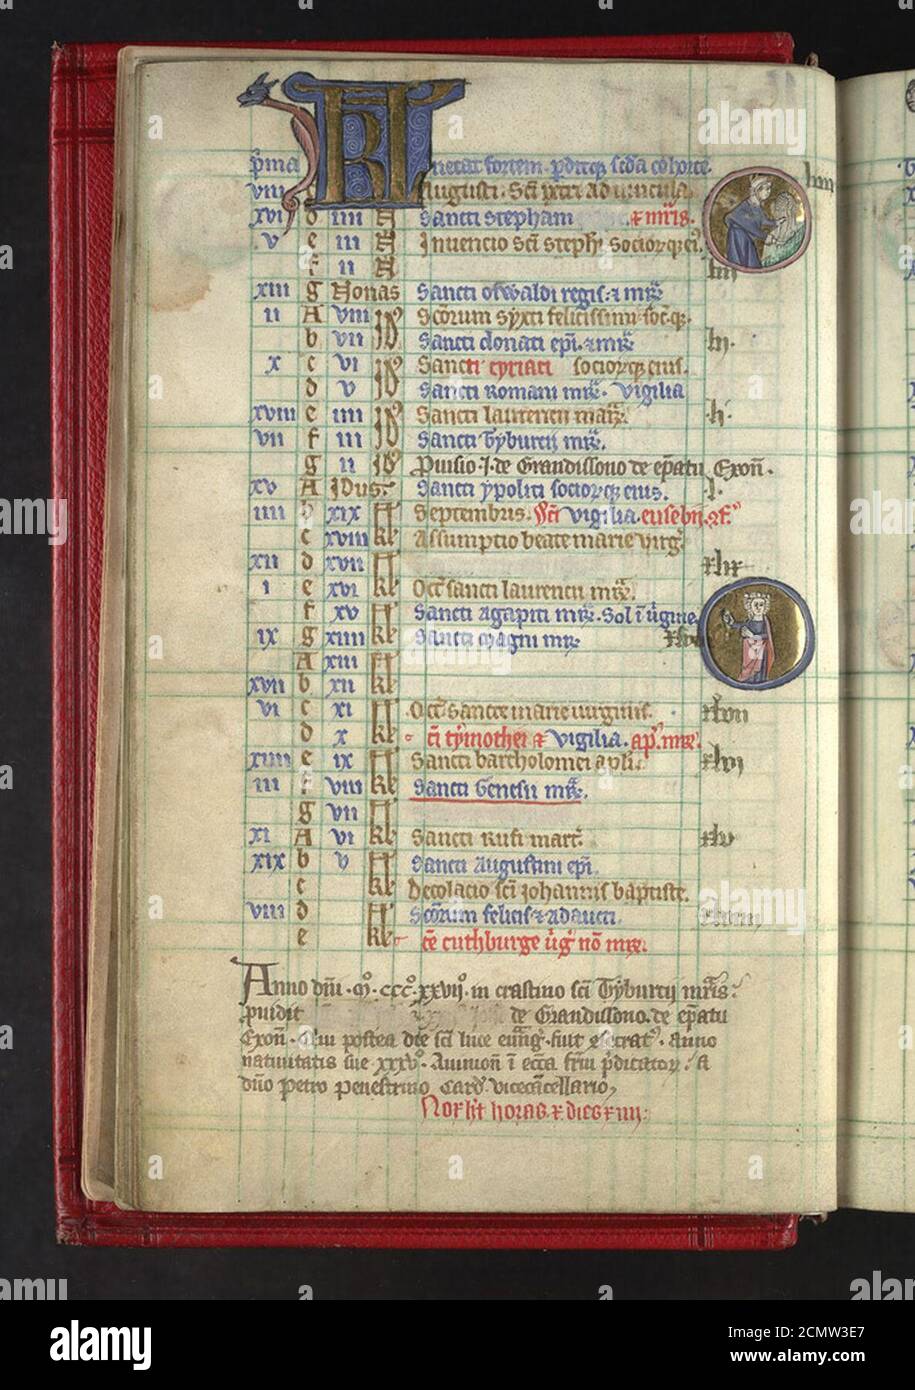 KL
p̄ma necat fortem . p̄ditq; s̄c̄da cohorte
viii Augusti . Sc̄i petri ad vincula
xvi d iiii N Sancti stephani & m̄ris.
v e iii N Inuencio sc̄i steph̄i socior̄q; ei⁹.
f ii N
xiii g Nonas Sancti oswaldi regis & mr̄.
ii A viii Id Sc̄orum syxti felicissimi soc̄.q;
b vii Id Sancti donati ep̄i . & mr̄ lij.
x c vi Id Sancti cyriaci sociorq; eius.
d v Id Sancti Romani mr̄ . vigilia
xviii e iiii Id Sancti laurencii mar̄. li.
vii f iii Id Sancti Tyburcii mr̄.
g ii Id p̄uisio J . de Grandissono de ep̄atu Exon̄ .
xv A Idus Sancti ypoliti sociorq; eius. l.
iiii b xix kl Septembris . Sc̄i vigilia . eusebii . cf.
c xviii kl Assumptio beate marie virḡ
xii d xvii kl xlix
i e xvi kl Oct̄ sancti laurencii mr̄.
f xv kl Sancti Agapiti mr̄ . Sol ī ūgine
ix g xiiii kl Sancti Magni mr̄
A xiii kl
xvii b xii kl
vi c xi kl Oct̄ Sancte marie uirginis . xlvii
d x kl c̄i tymothei & vigilia . ap̄. mr̄.
xiiii e ix kl Sancti bartholomei apl̄i . xlvi
iii f viii kl Sancti Genesii mr̄.
g vii kl
xi A vi kl Sancti Rufi mart̄. xlv
xix b v kl Sancti Augustini ep̄i
c kl Decolacio sc̄i Johannis baptiste.
viii d kl Sc̄orum felicis & adaucti . xliiii
e kl c̄e cuthburge ūḡ nō mr̄.
Anno dn̄i . Mº . cccº . xxvijº . in crastino sc̄i Tyburcii mr̄is .
p̄uidit de Grandissono . de ep̄atu
Exon̄ . postea die sc̄i luce euāḡ . fuit c̄secrat⁹ . anno
natiuitatis sue xxxvº . Auinion̄ ī ecc̄a fr̄m p̄dicator . A
dn̄o Petro Penestrino Card̄ . vicecācellario,
Nox h̄t horas . x . dies xiiij :
alamy
Image ID: 2CMW3E7
www.alamy.com